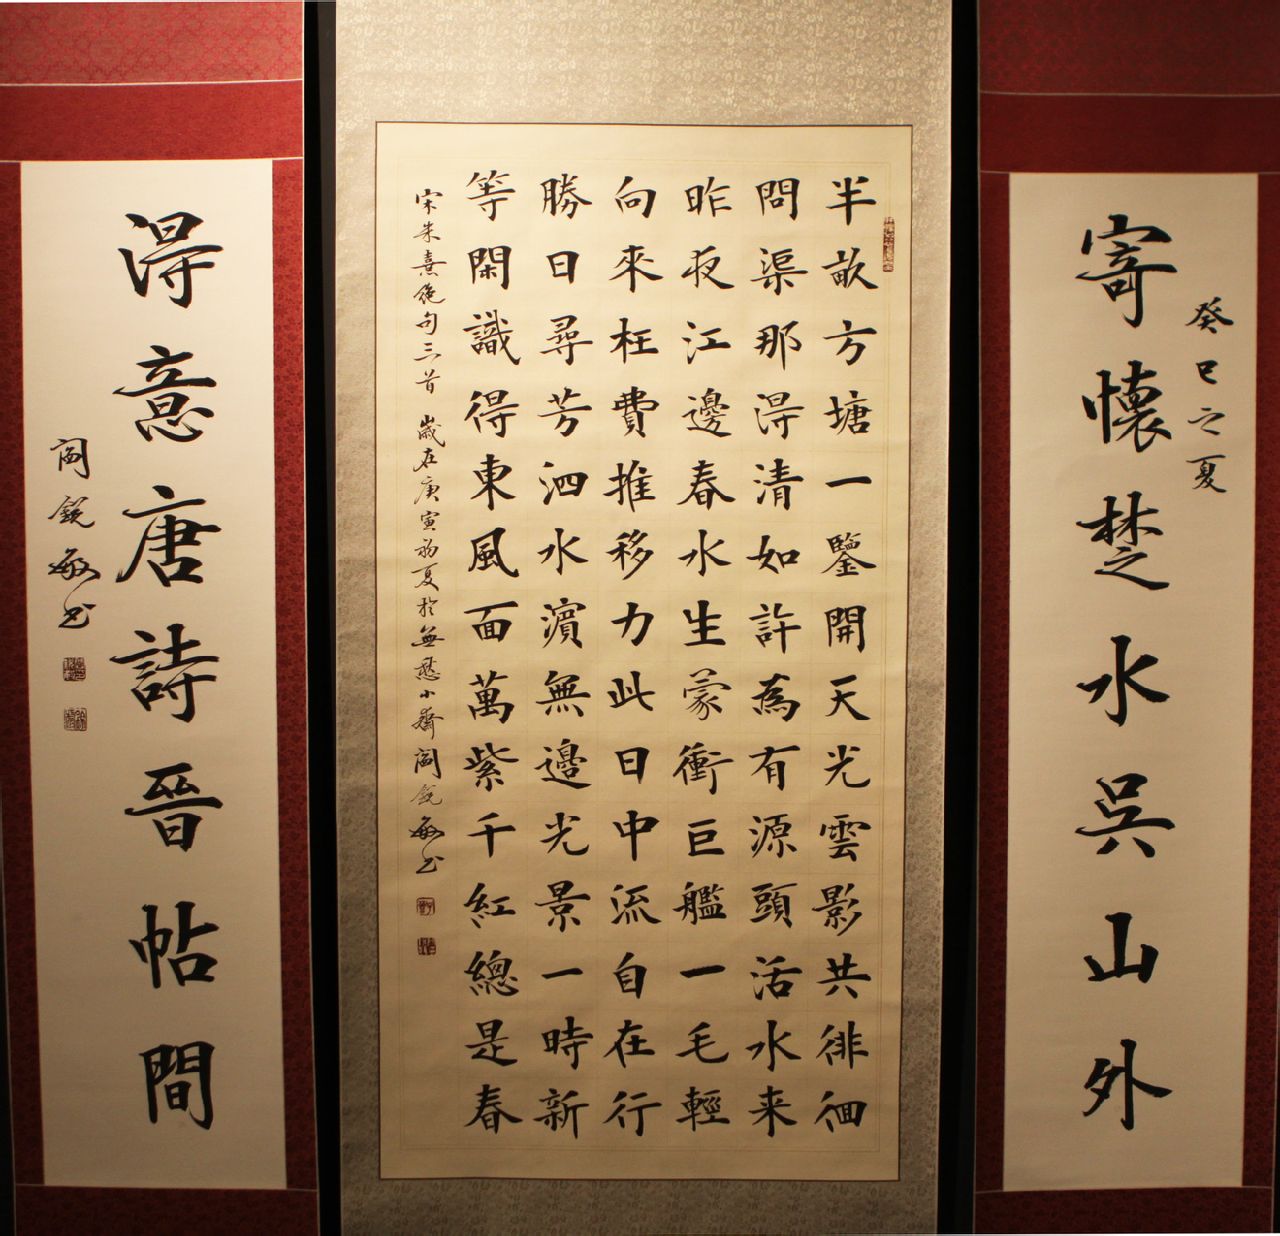 癸巳之夏
寄懷楚水吳山外
半畝方塘一鑒開天光雲影共徘徊
問渠那淂清如許為有源頭活水来
昨夜江邊春水生蒙衝巨艦一毛輕
向來枉費推移力此日中流自在行
勝日尋芳泗水濵無邊光景一時新
等閑識得東風面萬紫千紅總是春
宋朱熹絕句三首 歲在庚寅初夏於無愁小齋閻銳敏书
淂意唐詩晉帖間
閻銳敏书